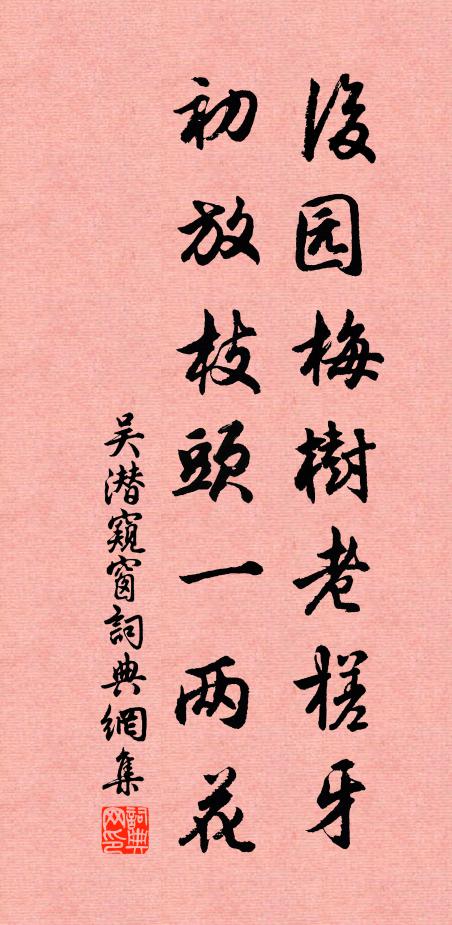 後园梅樹老槎牙
初放枝頭一两花
吴潜窺窗詞典網集
詞典网印